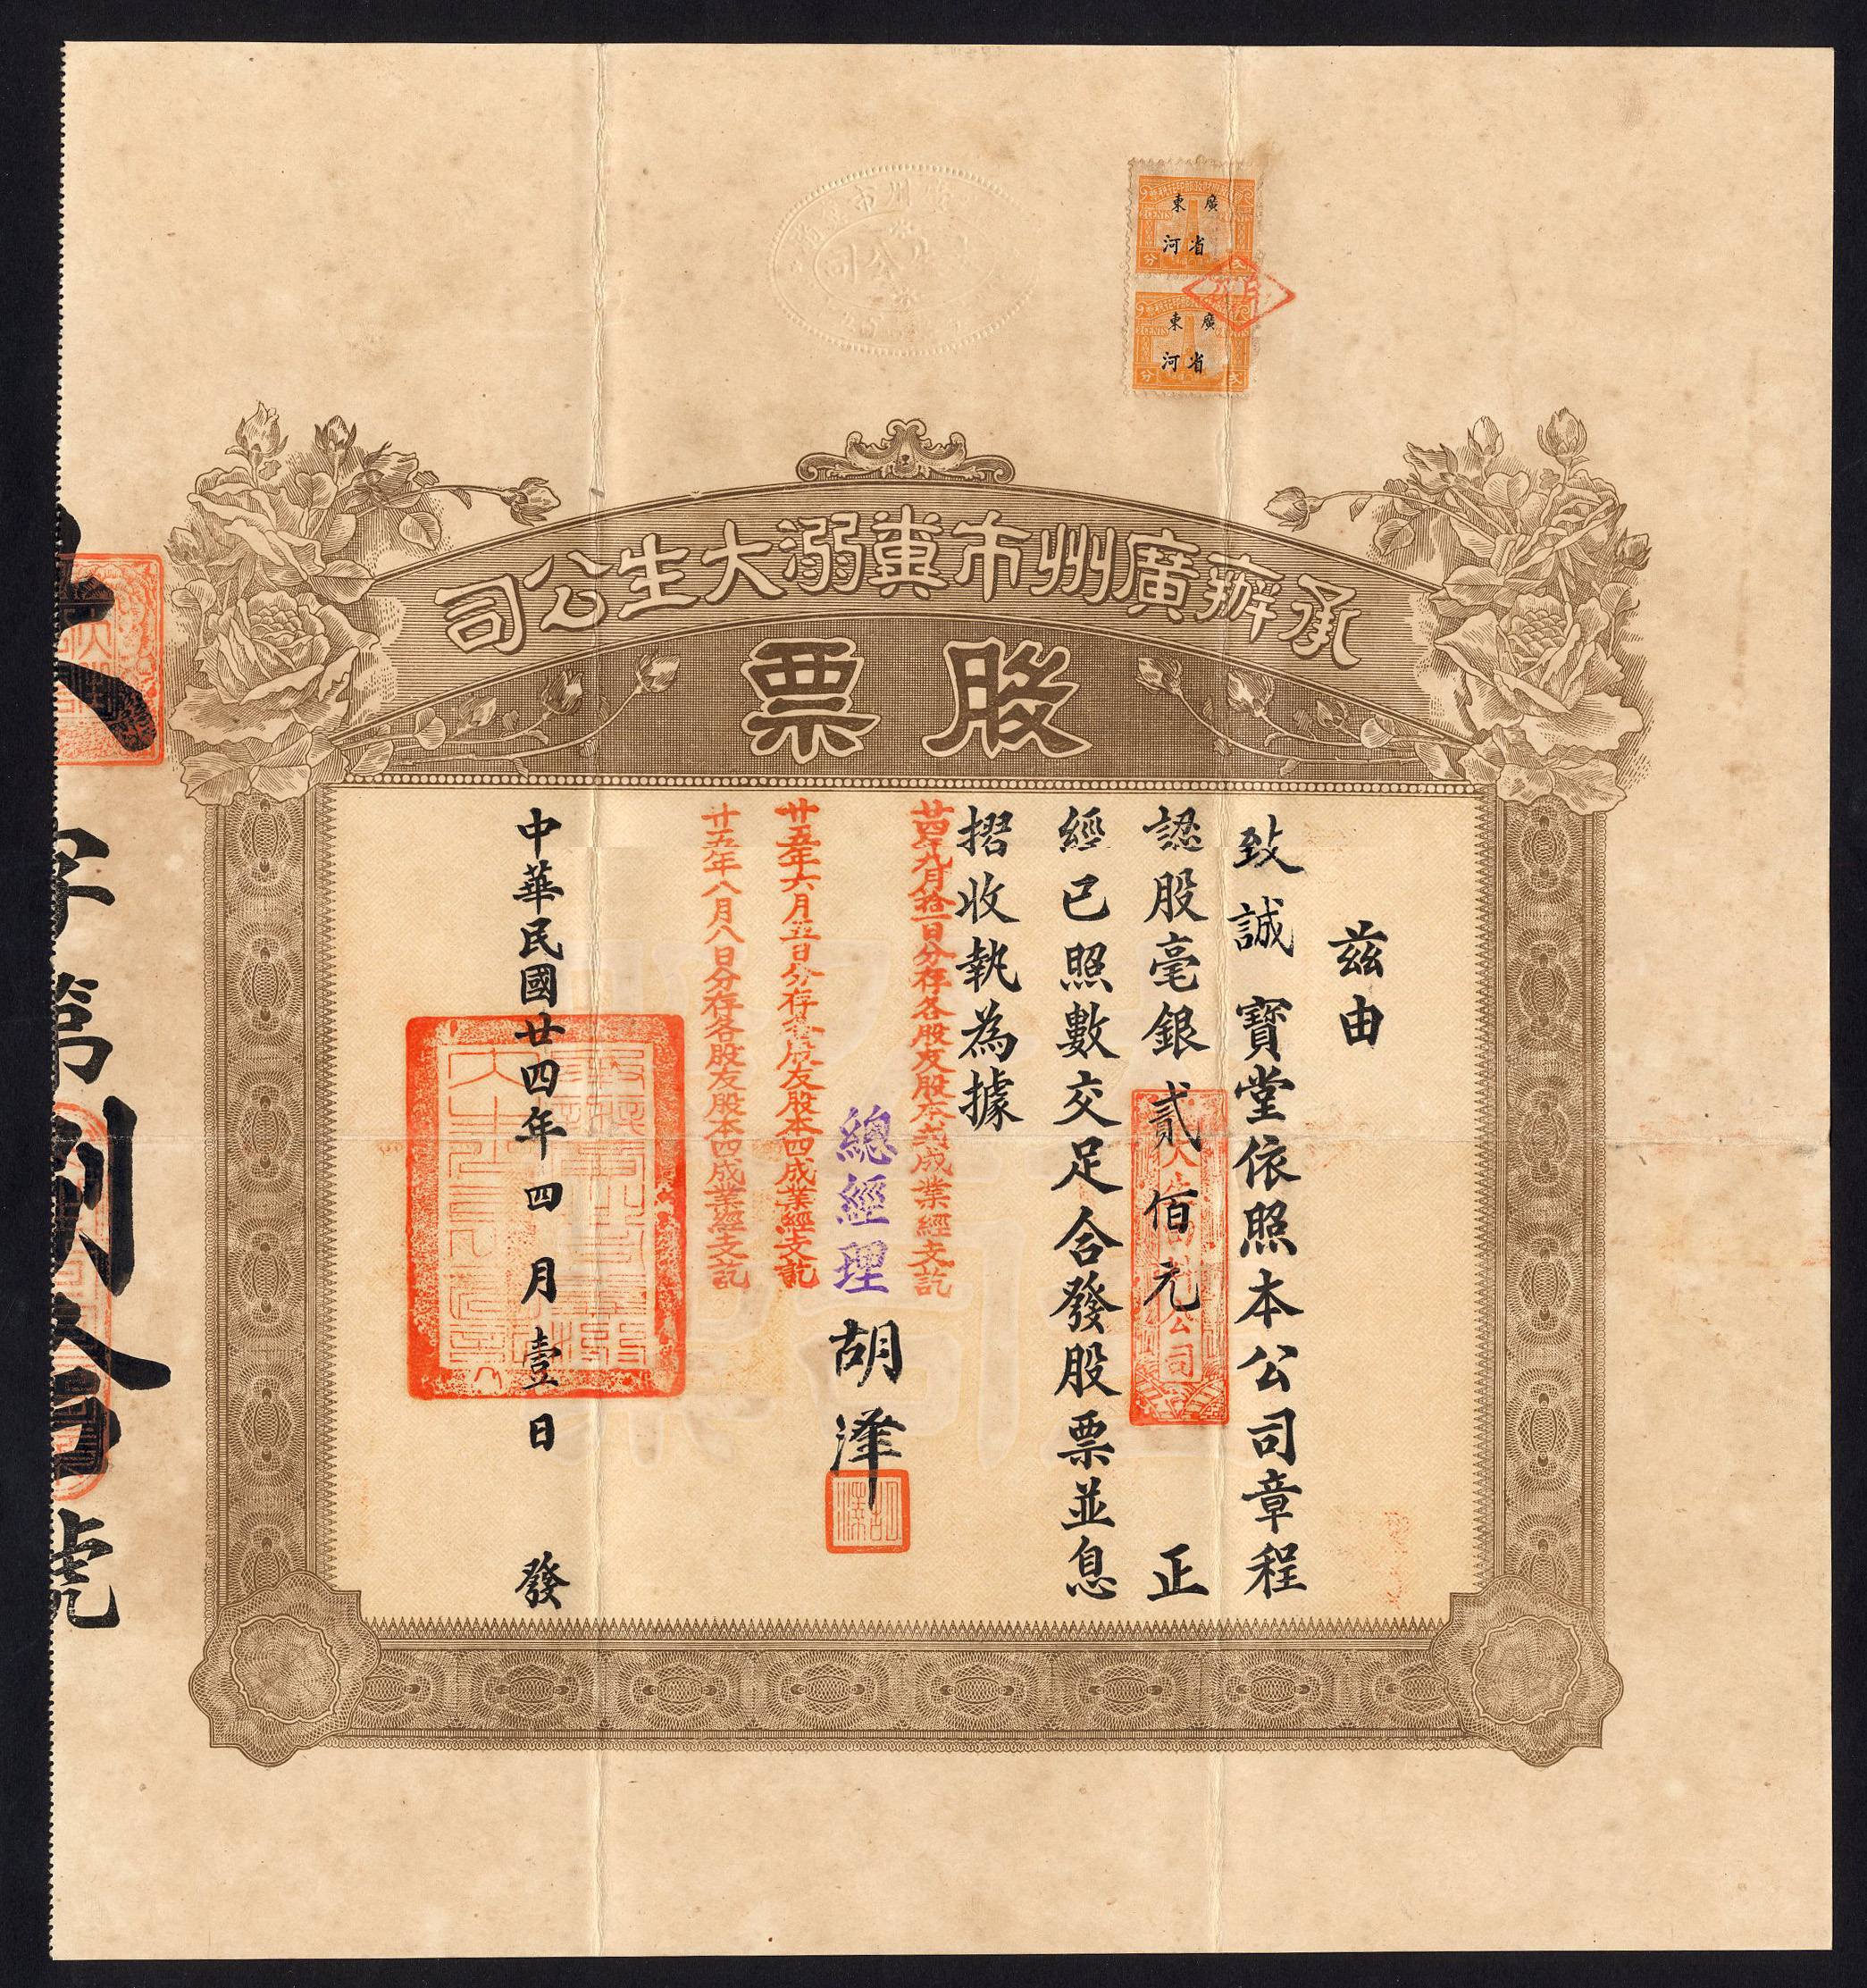 承辦廣州市糞溺大生公司
股票
茲由
致誠 寶堂依照本公司章程
認股毫銀貳佰元 正
經已照數交足合發股票並息
摺收執為據
廿四年九月拾一日分存各股友股本弍成業經支訖
總經理 胡澤
廿五年六月五日分存各股友股本四成業經支訖
廿五年八月八日分存各股友股本四成業經支訖
中華民國廿四年四月壹日 發
字第 號
廣東
省河
廣東
省河
2 CENTS